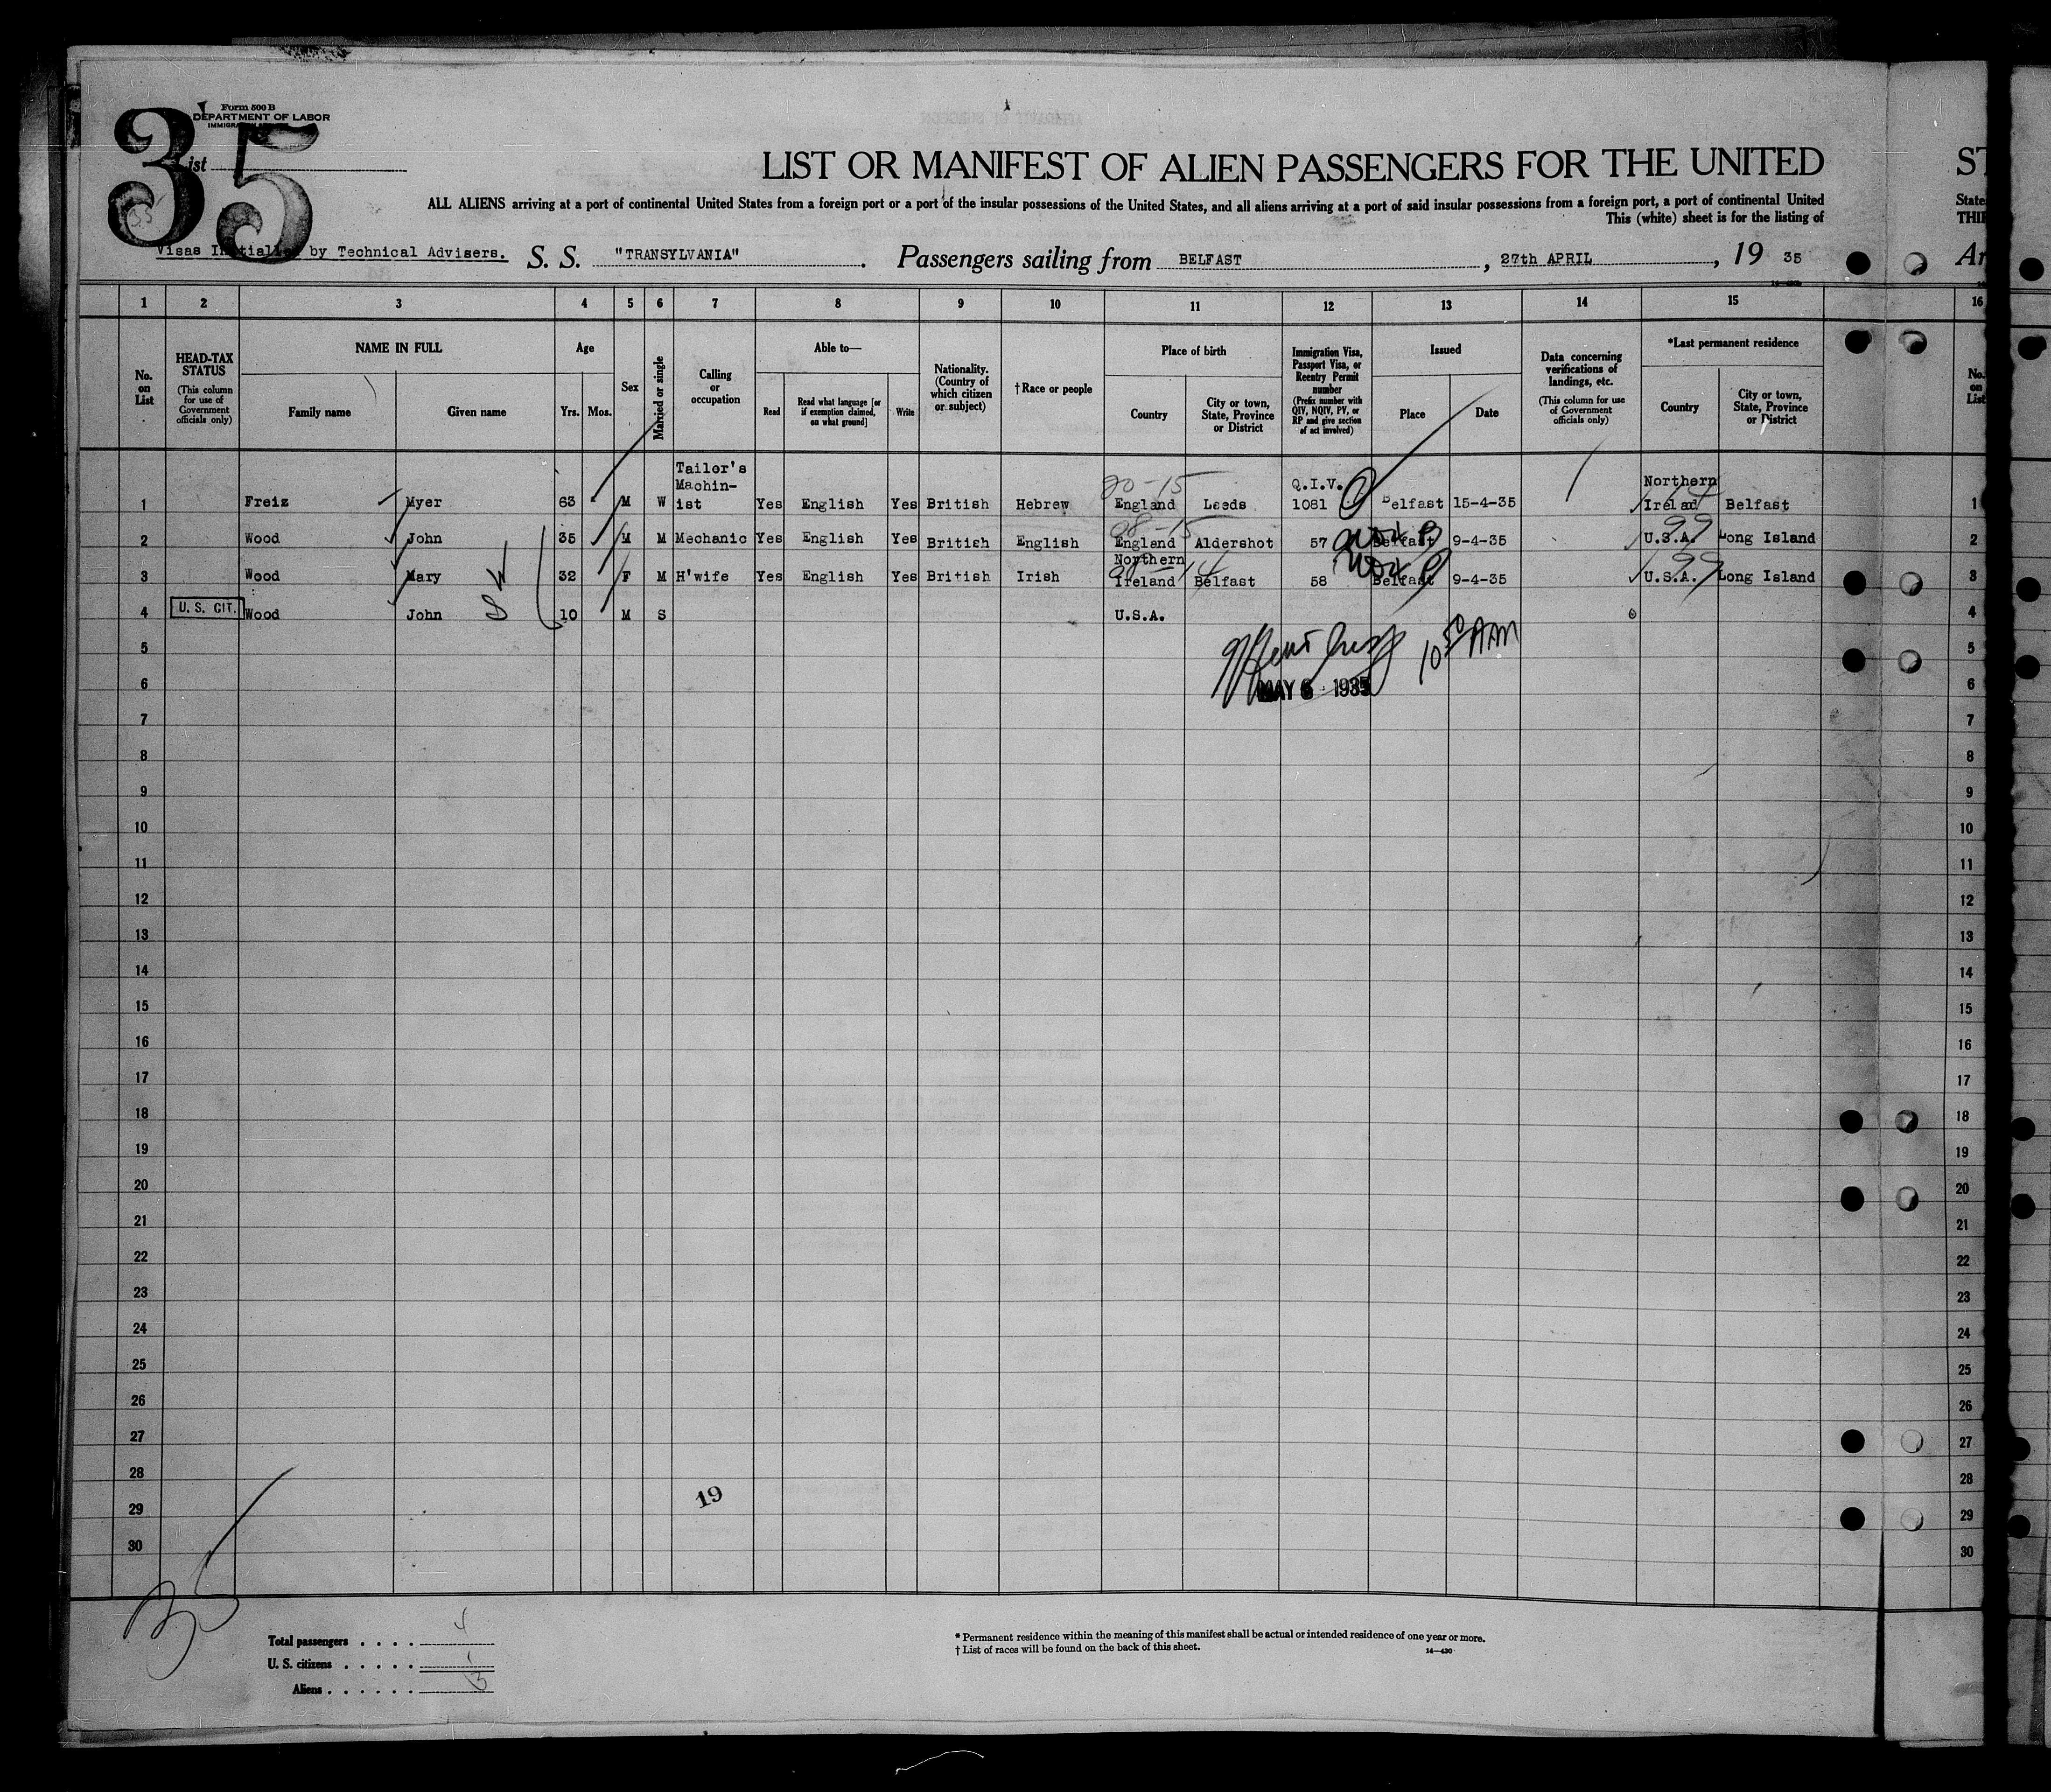 35
Form 500 B
DEPARTMENT OF LABOR
ist
LIST OR MANIFEST OF ALIEN PASSENGERS FOR THE UNITED
ST
ALL ALIENS arriving at a port of continental United States from a foreign port or a port of the insular possessions of the United States, and all aliens arriving at a port of said insular possessions from a foreign port, a port of continental United
State
This (white) sheet is for the listing of
THI
Visas Initialled by Technical Advisers. S. S. "TRANSYLVANIA". Passengers sailing from BELFAST, 27th APRIL, 19 35
Ar
1 2 3 4 5 6 7 8 9 10 11 12 13 14 15 16
No. on List
HEAD-TAX STATUS (This column for use of Government officials only)
NAME IN FULL
Family name Given name
Age
Yrs. Mos.
Sex
Married or single
Calling or occupation
Able to—
Read
Read what language [or if exemption claimed, on what ground]
Write
Nationality. (Country of which citizen or subject)
† Race or people
Place of birth
Country
City or town, State, Province or District
Immigration Visa, Passport Visa, or Reentry Permit number (Prefix number with QIV, NQIV, PV, or RP and give section of act involved)
Issued
Place Date
Data concerning verifications of landings, etc. (This column for use of Government officials only)
*Last permanent residence
Country
City or town, State, Province or District
No. on List
1 Freiz Myer 63 M W Tailor's Machin-ist Yes English Yes British Hebrew 20-15 England Leeds Q.I.V. 1081 Belfast 15-4-35 Northern Irelad Belfast 1
2 Wood John 35 M M Mechanic Yes English Yes British English 08-15 England Aldershot 57 Belfast 9-4-35 U.S.A. 99 Long Island 2
3 Wood Mary 32 F M H'wife Yes English Yes British Irish Northern Ireland Belfast 58 Belfast 9-4-35 U.S.A. 99 Long Island 3
4 U. S. CIT. Wood John 10 M S U.S.A. 4
5 5
6 MAY 6 1935 6
7 7
8 8
9 9
10 10
11 11
12 12
13 13
14 14
15 15
16 16
17 17
18 18
19 19
20 20
21 21
22 22
23 23
24 24
25 25
26 26
27 27
28 28
29 19 29
30 30
Total passengers . . . . 4
U. S. citizens . . . . . 1
Aliens . . . . . . 3
* Permanent residence within the meaning of this manifest shall be actual or intended residence of one year or more.
† List of races will be found on the back of this sheet.
14—430